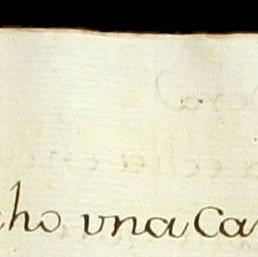 ho vna Ca